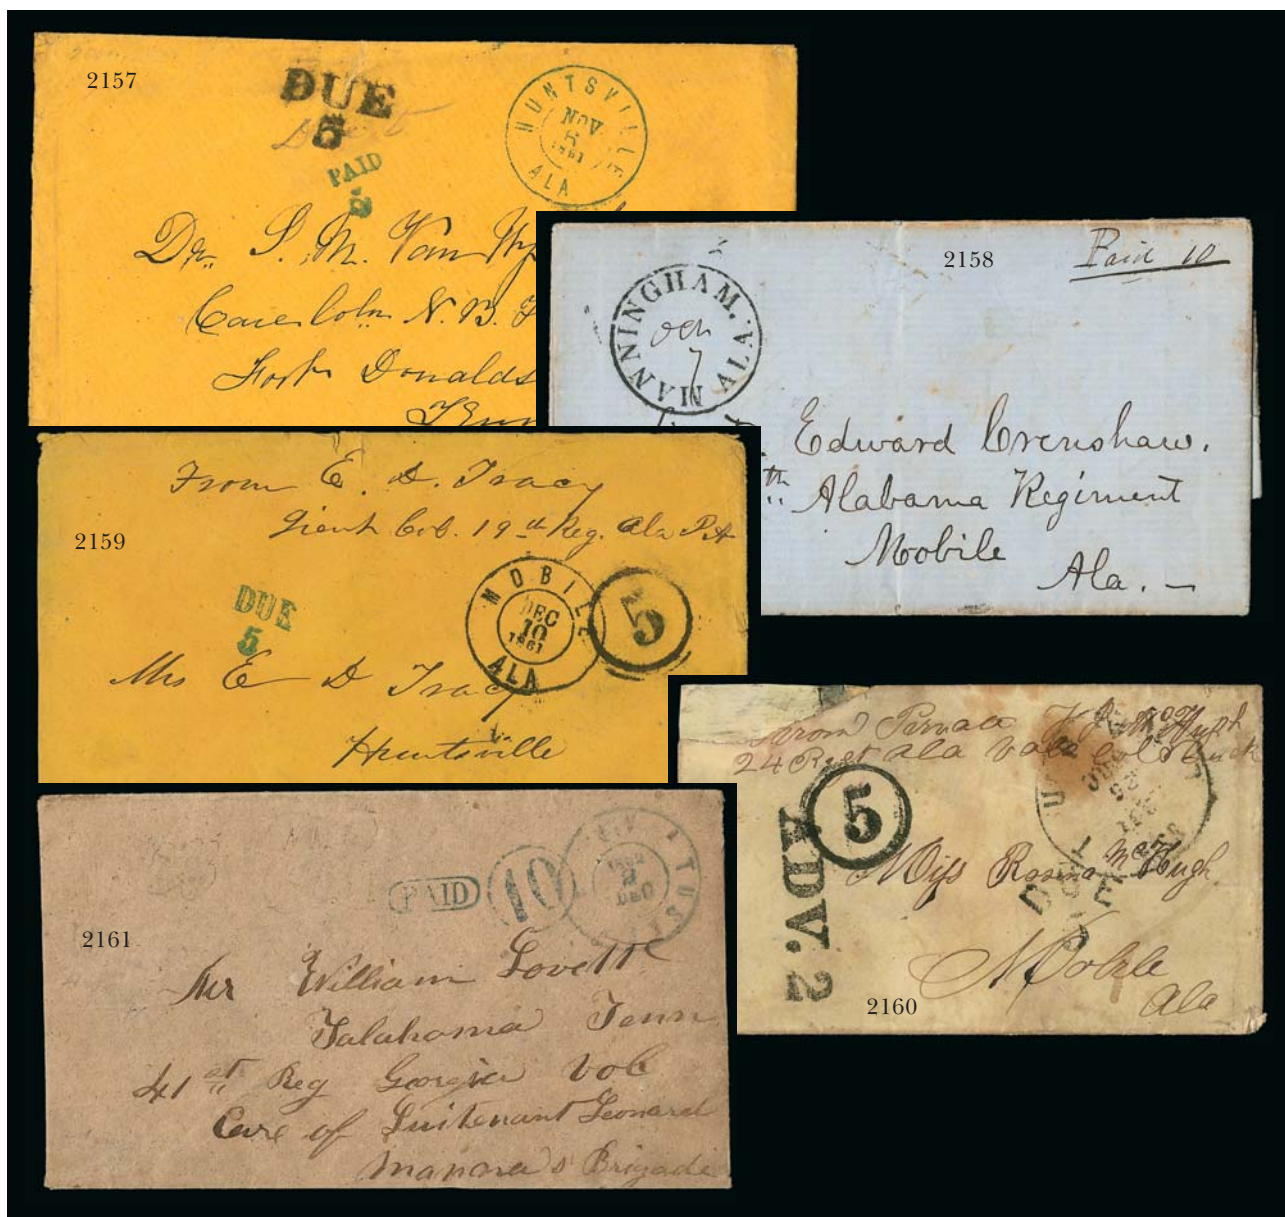 2157
DUE
5
PAID
5
HUNTSVILLE
NOV.
5
1861
ALA
Dr. S. M. Van Wy
Care Coln N. B. F
Fort Donalds
Tenn
2158
Paid 10
MANNINGHAM. ALA
Oct
7
Edward Crenshaw.
th Alabama Regiment
Mobile
Ala.
2159
From E. D. Tracy
Lieut Col. 19th Reg. Ala
DUE
5
MOBILE
DEC
10
1861
ALA
5
Mrs E D Tracy
Huntsville
2160
24 Regt Ala Vols Col Buck
5
ADV. 2
DUE
Miss Rosina McHugh
Mobile
Ala
2161
PAID
10
1862
2
DEC
Mr William Lovett
Talahoma Tenn
41st Reg Georgia Vol
Care of Luitenant Leonard
Brigade